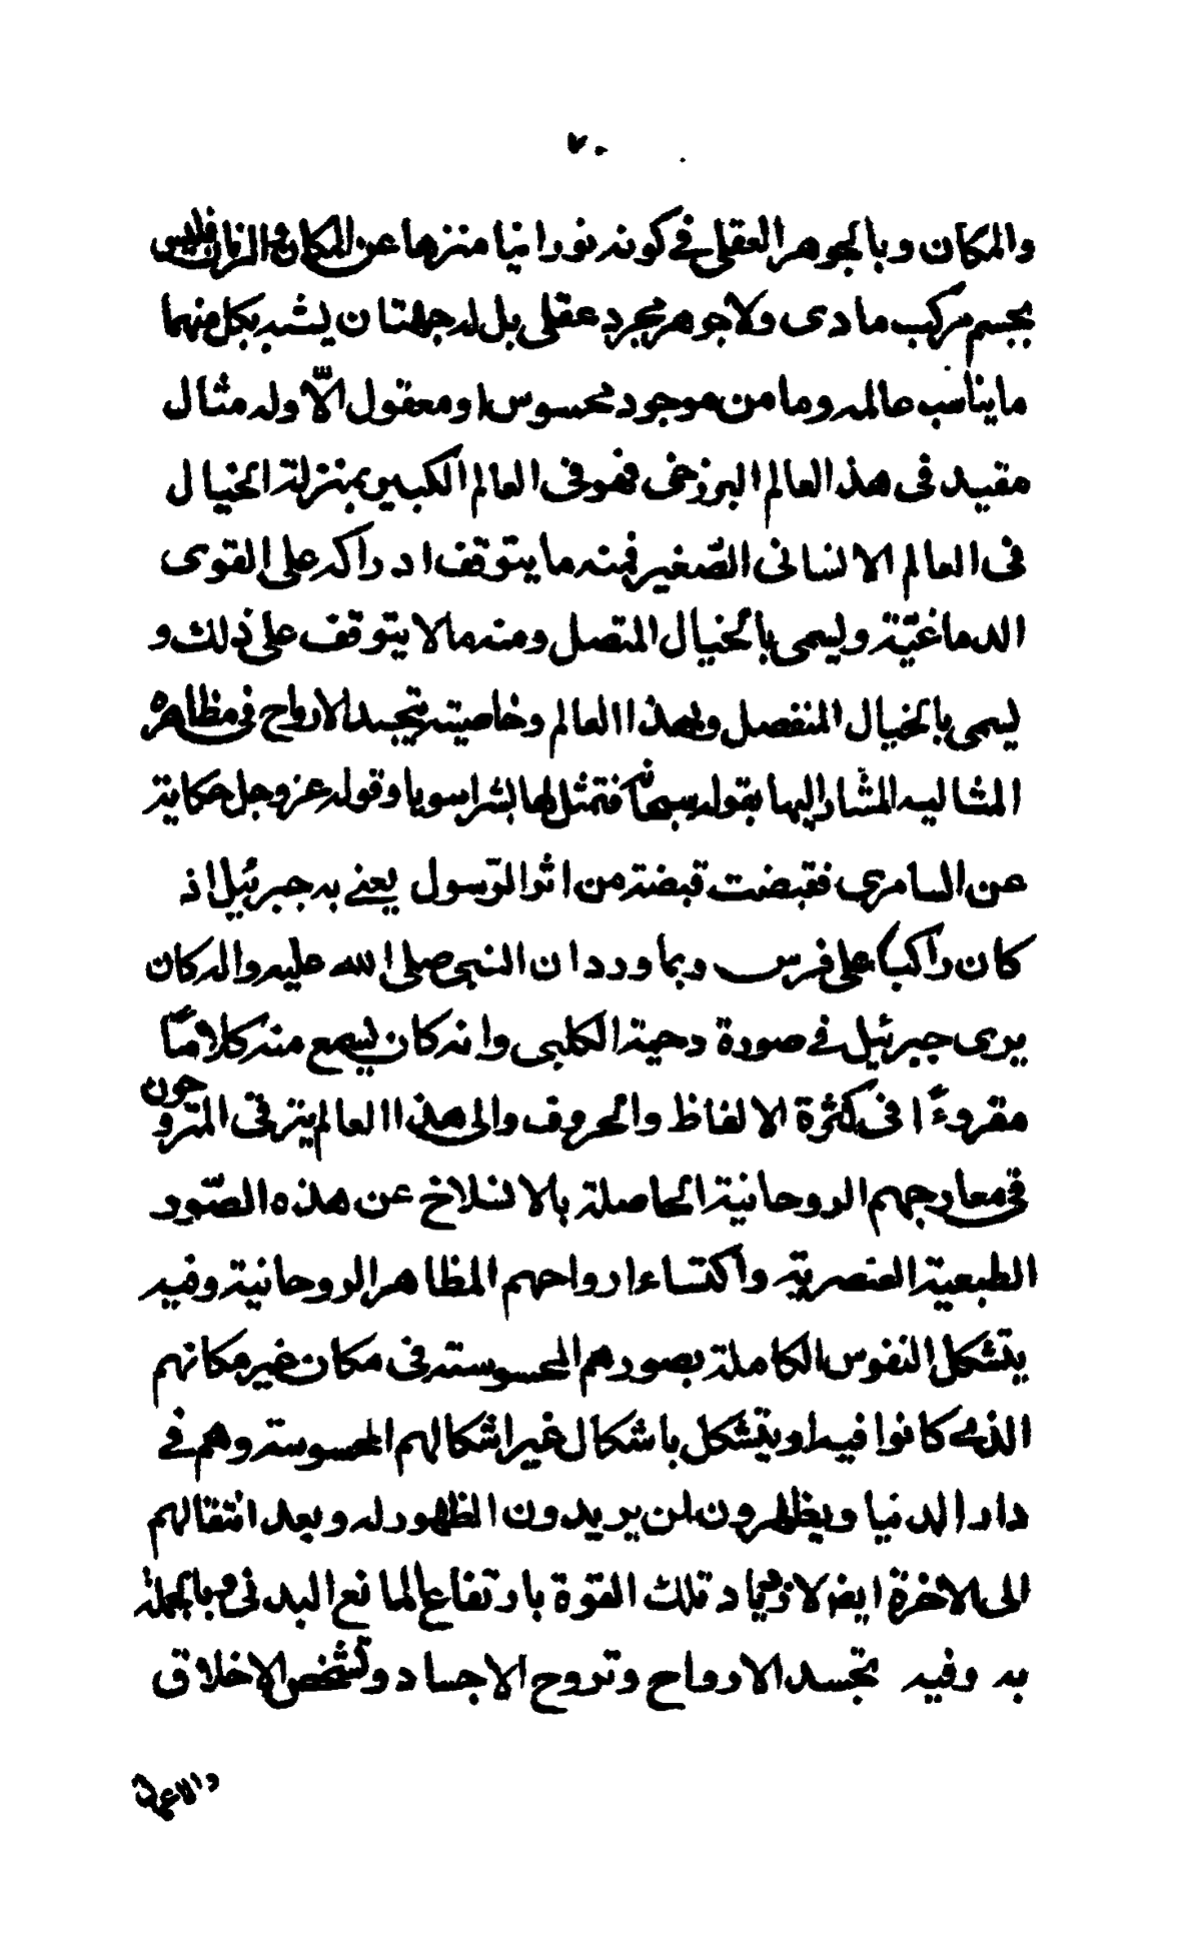 ٧٠
والمكان وبالجوهر العقلى في كونه نورانيا منزها عن المكان والزمان فليس
بجسم مركب مادى ولا جوهر مجرد عقلى بل له جهتان يشبه بكل منهما
ما يناسب عالمه وما من موجود محسوس او معقول الّا وله مثال
مقيد فى هذ العالم البرزخى فهو فى العالم الكبير بمنزلة الخيال
فى العالم الانسانى الصّغير فمنه ما يتوقف ادراكه على القوى
الدماغيّة وليمى بالخيال المتصل ومنه ما لا يتوقف على ذلك و
ليمى بالخيال المنفصل وبهذا العالم وخاصيته يتجسد الارواح فى مظاهره
المثاليه المشّار اليها بقوله سبحانه فتمثل لها بشرا سويا وقوله عز وجل حكاية
عن السامرى فقبضت قبضة من اثر الرّسول يعنى به جبرئيل اذ
كان راكبا على فرس وبما ورد ان النبى صلى الله عليه واله كان
يرى جبرئيل في صورة دحية الكلبى وانه كان يسمع منه كلامًا
مقروءًا فى كثرة الالفاظ والحروف والى هذا العالم يترقى المتروحون
فى معارجهم الروحانية الحاصلة بالانسلاخ عن هذه الصّور
الطبعية العنصريّة واكتساء ارواحهم المظاهر الروحانية وفيه
يتشكل النفوس الكاملة بصورهم المحسوسته فى مكان غير مكانهم
الذى كانوا فيه او يتشكل باشكال غير اشكالهم المحسوسته وهم في
دار الدنيا ويظهرون لمن يريدون الظهور له وبعد انتقالهم
الى الاخرة ايضا لازدياد تلك القوة بارتفاع المانع البدنى وبالجملة
به وفيه تجسد الارواح وتروح الاجساد وتشخص الاخلاق
والاعمال